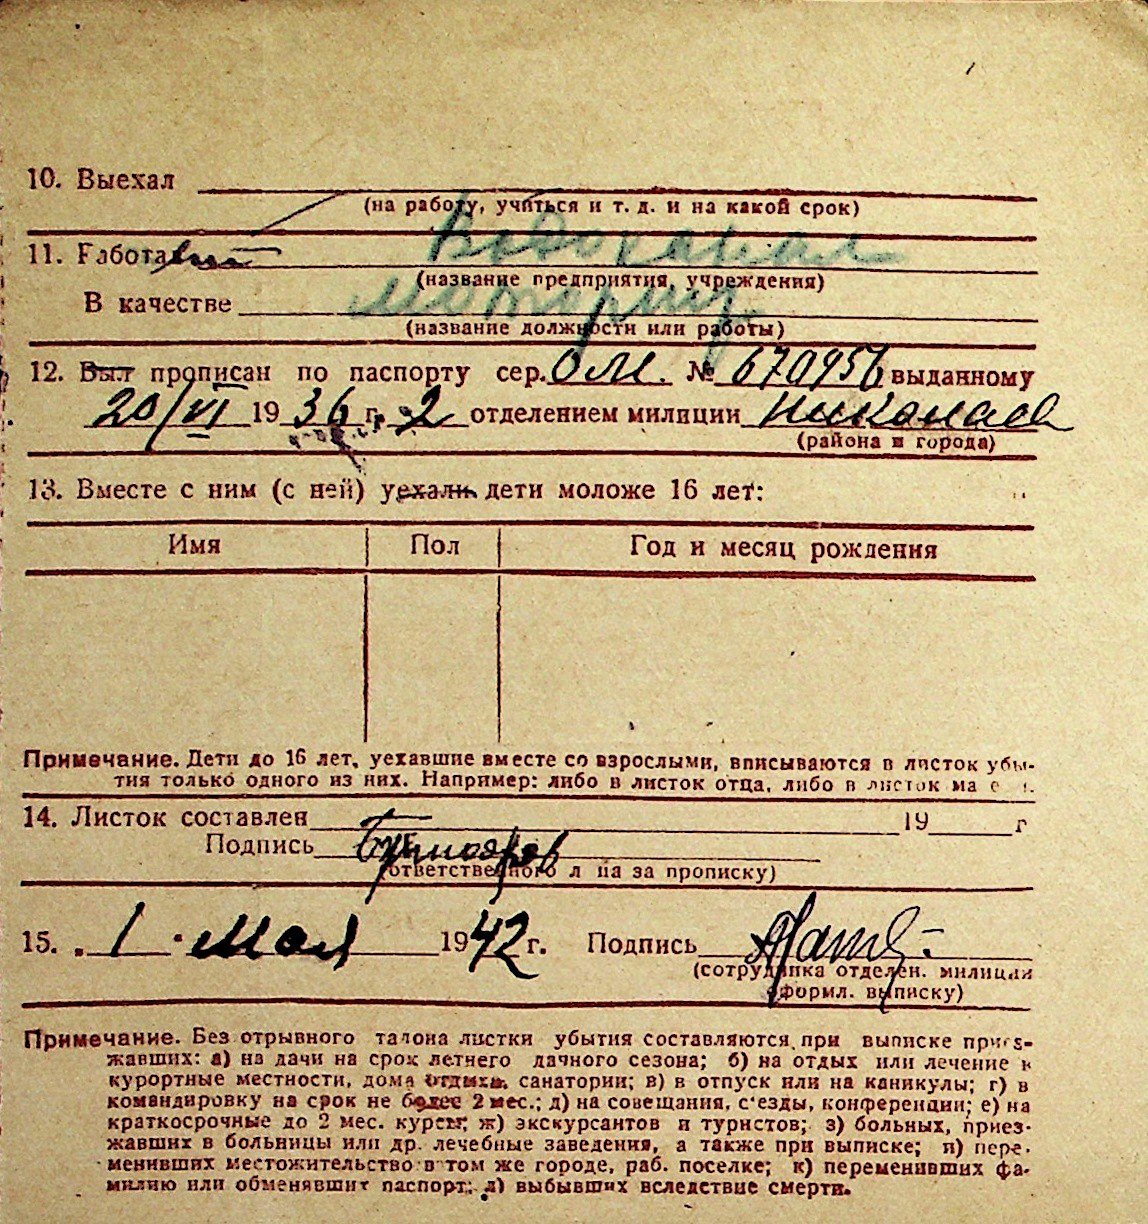 10. Выехал
(на работу, учиться и т. д. и на какой срок)
11. Работа Водоканал
(название предприятия, учреждения)
В качестве моторист
(название должности или работы)
12. Был прописан по паспорту сер. ОМ. № 670956 выданному
20/VI 1936 г. 2 отделением милиции Николаев
(района и города)
13. Вместе с ним (с ней) уехали дети моложе 16 лет:
Имя Пол Год и месяц рождения
Примечание. Дети до 16 лет, уехавшие вместе со взрослыми, вписываются в листок убы-
тия только одного из них. Например: либо в листок отца, либо в листок ма
14. Листок составлен 19 г
Подпись
(ответственного л ца за прописку)
15. „1" Мая 1942 г. Подпись
(сотрудника отделен. милиции
оформил. выписку)
Примечание. Без отрывного талона листки убытия составляются при выписке приез-
жавших: а) на дачи на срок летнего дачного сезона; б) на отдых или лечение в
курортные местности, дома отдыха, санатории; в) в отпуск или на каникулы; г) в
командировку на срок не более 2 мес.; д) на совещания, с'езды, конференции; е) на
краткосрочные до 2 мес. курсы; ж) экскурсантов и туристов; з) больных, приез-
жавших в больницы или др. лечебные заведения, а также при выписке; и) пере-
менивших местожительство в том же городе, раб. поселке; к) переменивших фа-
милию или обменявших паспорт; л) выбывших вследствие смерти.